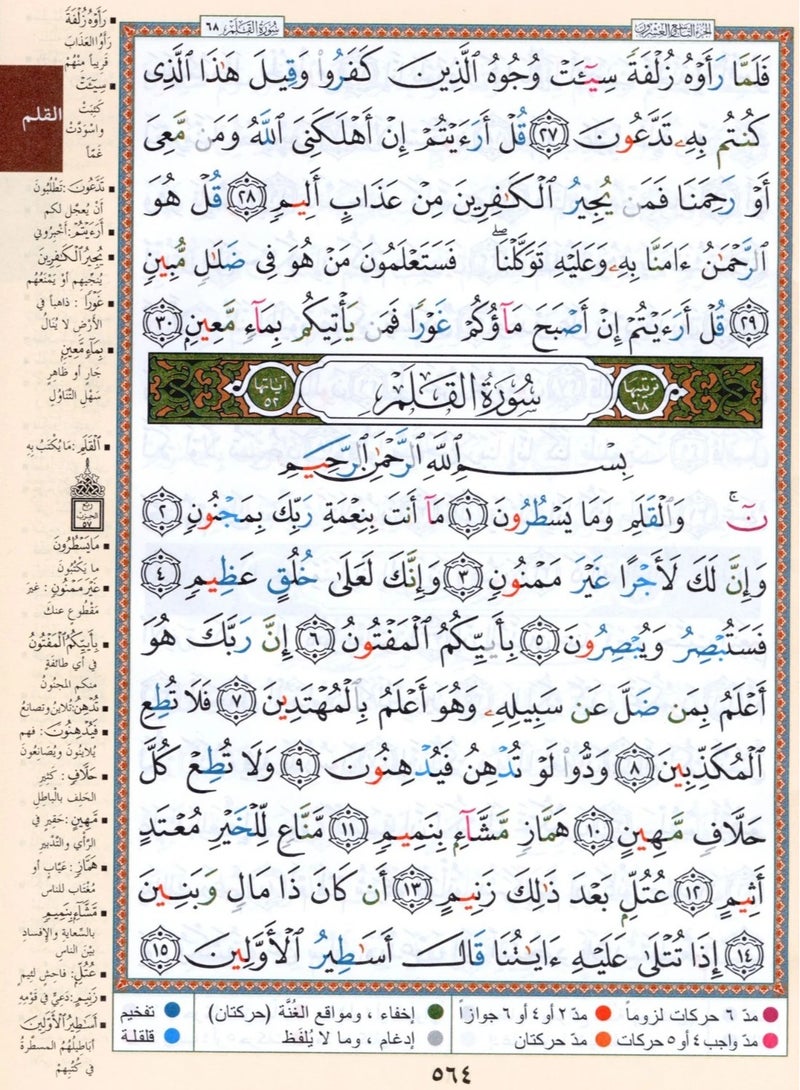 سُورَةُ القَلَمِ ٦٨
الجزء التاسع والعشرون
فَلَمَّا رَأَوْهُ زُلْفَةً سِيٓـَٔتْ وُجُوهُ ٱلَّذِينَ كَفَرُوا۟ وَقِيلَ هَٰذَا ٱلَّذِى
كُنتُم بِهِۦ تَدَّعُونَ ﴿٢٧﴾ قُلْ أَرَءَيْتُمْ إِنْ أَهْلَكَنِىَ ٱللَّهُ وَمَن مَّعِىَ
أَوْ رَحِمَنَا فَمَن يُجِيرُ ٱلْكَٰفِرِينَ مِنْ عَذَابٍ أَلِيمٍ ﴿٢٨﴾ قُلْ هُوَ
ٱلرَّحْمَٰنُ ءَامَنَّا بِهِۦ وَعَلَيْهِ تَوَكَّلْنَا ۖ فَسَتَعْلَمُونَ مَنْ هُوَ فِى ضَلَٰلٍ مُّبِينٍ
﴿٢٩﴾ قُلْ أَرَءَيْتُمْ إِنْ أَصْبَحَ مَآؤُكُمْ غَوْرًا فَمَن يَأْتِيكُم بِمَآءٍ مَّعِينٍۭ ﴿٣٠﴾
ترتيبها ٦٨ سُورَةُ القَلَمِ آياتها ٥٢
بِسْمِ ٱللَّهِ ٱلرَّحْمَٰنِ ٱلرَّحِيمِ
نٓ ۚ وَٱلْقَلَمِ وَمَا يَسْطُرُونَ ﴿١﴾ مَآ أَنتَ بِنِعْمَةِ رَبِّكَ بِمَجْنُونٍ ﴿٢﴾
وَإِنَّ لَكَ لَأَجْرًا غَيْرَ مَمْنُونٍ ﴿٣﴾ وَإِنَّكَ لَعَلَىٰ خُلُقٍ عَظِيمٍ ﴿٤﴾
فَسَتُبْصِرُ وَيُبْصِرُونَ ﴿٥﴾ بِأَييِّكُمُ ٱلْمَفْتُونُ ﴿٦﴾ إِنَّ رَبَّكَ هُوَ
أَعْلَمُ بِمَن ضَلَّ عَن سَبِيلِهِۦ وَهُوَ أَعْلَمُ بِٱلْمُهْتَدِينَ ﴿٧﴾ فَلَا تُطِعِ
ٱلْمُكَذِّبِينَ ﴿٨﴾ وَدُّوا۟ لَوْ تُدْهِنُ فَيُدْهِنُونَ ﴿٩﴾ وَلَا تُطِعْ كُلَّ
حَلَّافٍ مَّهِينٍ ﴿١٠﴾ هَمَّازٍ مَّشَّآءٍۭ بِنَمِيمٍ ﴿١١﴾ مَّنَّاعٍ لِّلْخَيْرِ مُعْتَدٍ
أَثِيمٍ ﴿١٢﴾ عُتُلٍّۭ بَعْدَ ذَٰلِكَ زَنِيمٍ ﴿١٣﴾ أَن كَانَ ذَا مَالٍ وَبَنِينَ
﴿١٤﴾ إِذَا تُتْلَىٰ عَلَيْهِ ءَايَٰتُنَا قَالَ أَسَٰطِيرُ ٱلْأَوَّلِينَ ﴿١٥﴾
رَأَوْهُ زُلْفَةً
رَأَوُا العَذَابَ
قَرِيباً مِنْهُمْ
سِيٓـَٔتْ
كَئِبَتْ
واسْوَدَّتْ
غَمّاً
القلم
تَدَّعُونَ: تَطْلُبُونَ
أَنْ يُعجَّل لكم
أَرَءَيْتُمْ: أَخْبِرُوني
يُجِيرُ الكَٰفِرِينَ
يُنَجِّيهِم أَوْ يَمْنَعُهُم
غَوْرًا: ذاهباً في
الأَرْضِ لا يُنَالُ
بِمَآءٍ مَّعِينٍ
جَارٍ أو ظاهِرٍ
سَهْلِ التَّنَاوُلِ
ٱلْقَلَمِ: مَا يُكْتَبُ بِهِ
ربع
الحزب
٥٧
مَا يَسْطُرُونَ
ما يَكْتُبُونَ
غَيْرَ مَمْنُونٍ: غيرَ
مَقْطُوعٍ عنكَ
بِأَييِّكُمُ ٱلْمَفْتُونُ
في أي طائفةٍ
منكم المجنُونُ
تُدْهِنُ: تُلاينُ وتصانعُ
فَيُدْهِنُونَ: فهم
يُلاينُونَ ويُصَانِعُونَ
حَلَّافٍ: كثيرِ
الحَلِف بالْباطِلِ
مَّهِينٍ: حَقِيرٍ في
الرَّأي والتَّدْبِيرِ
هَمَّازٍ: عَيَّابٍ أو
مُغْتَابٍ للناسِ
مَّشَّآءٍ بِنَمِيمٍ
بالسِّعَاية والإفسادِ
بَيْنَ الناسِ
عُتُلٍّ: فاحشٍ لئيمٍ
زَنِيمٍ: دَعِيٍّ في قَوْمِهِ
أَسَٰطِيرُ ٱلْأَوَّلِينَ
أَبَاطيلُهُمُ المسطَّرةُ
في كُتُبِهِمْ
مدّ ٦ حركات لزوماً مدّ ٢ أو ٤ أو ٦ جوازاً إخفاء ، ومواقع الغُنَّة (حركتان) تفخيم
مدّ واجب ٤ أو ٥ حركات مدّ حركتان إدغام ، وما لا يُلفَظ قلقلة
٥٦٤